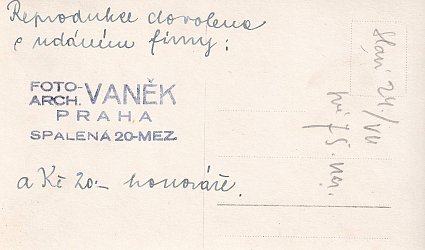 Reprodukce dovolena
s udáním firmy:
FOTO-
ARCH. VANĚK
PRAHA
SPALENÁ 20-MEZ.
a Kč 20.- honoráře.
24/VII